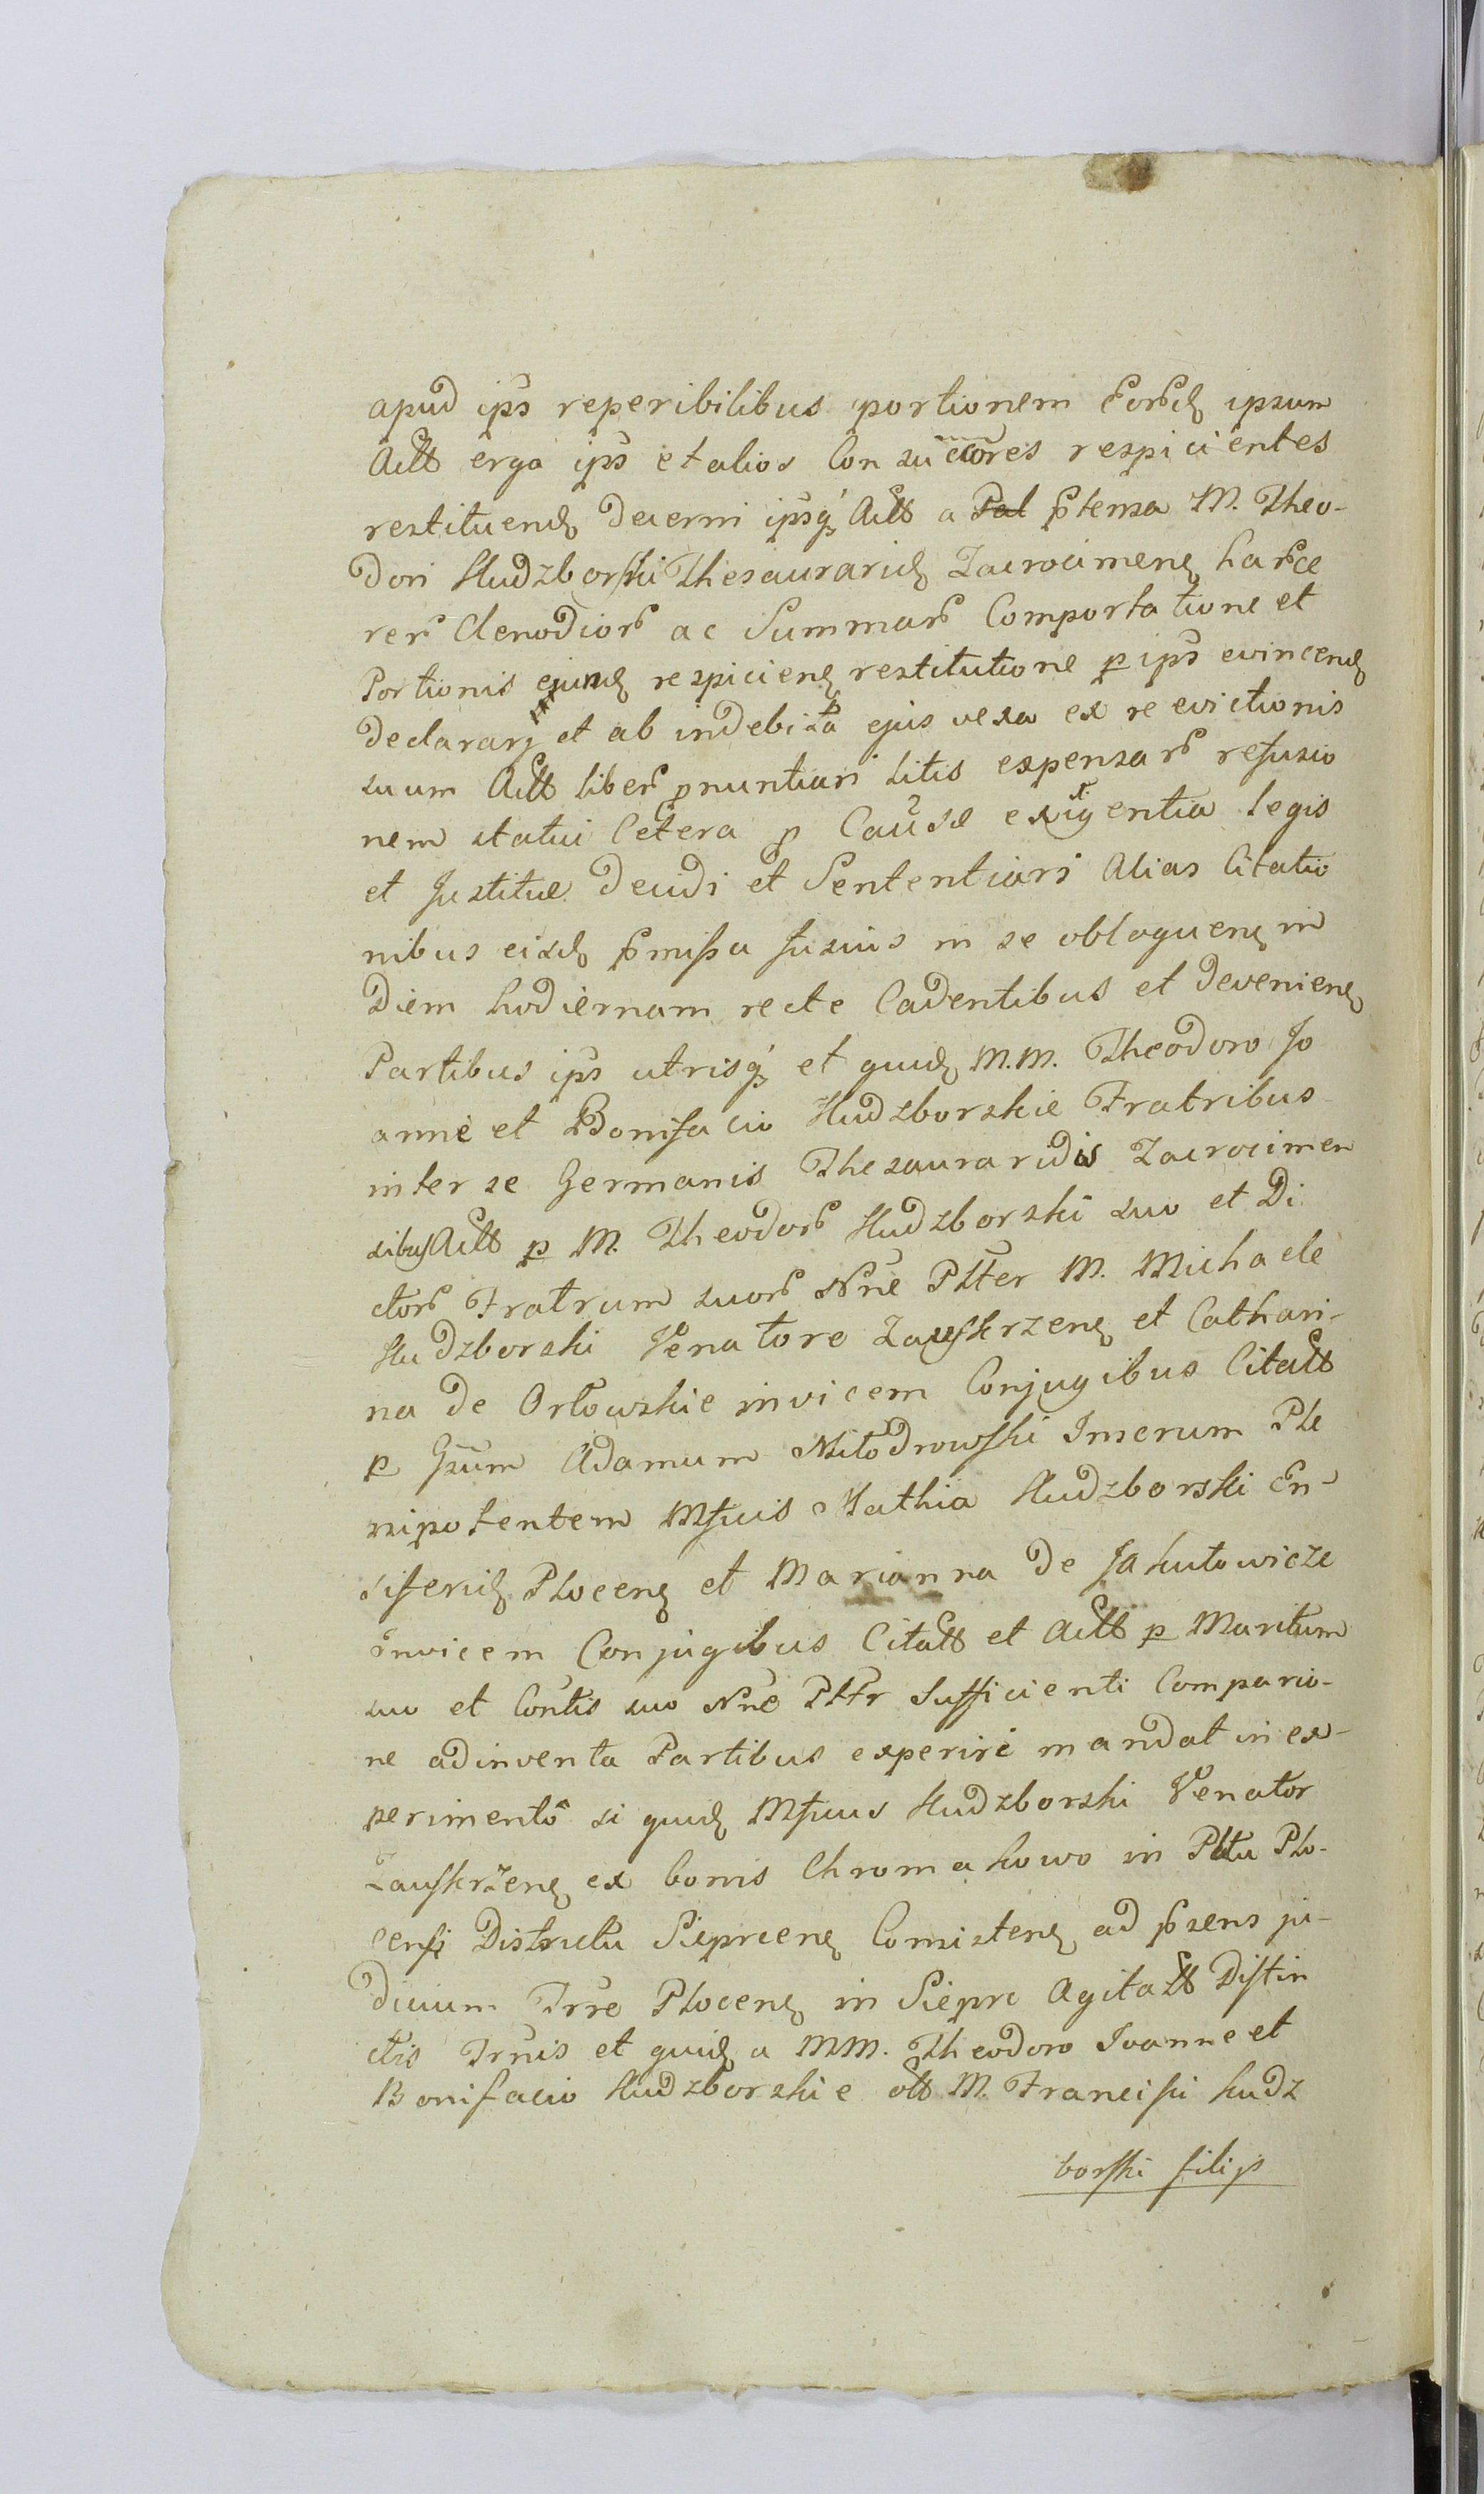 apud ips reperibilibus portionem eord ipsum
Actt erga ips et alios Con succores respicientes
restituend decerni ipsq Actt a Pal ptensa M. Theo-
dori Hudzborski Thesaurarid Zacrocimens harce
rer Clenodior ac Summar Comportatione et
Portionis ejusd respiciens restitutione p ips evincend
declarari et ab indebita ejus vexa ex re evictionis
suum Actt liber pnuntiari litis expensar refusio
nem statui Cetera p Causæ exigentia legis
et Justitiæ decidi et Sententiari Alias Citatio
nibus eisd pmissa fusius in se obloquens in
Diem hodiernam recte Cadentibus et deveniens
Partibus ips utrisq et quid M.M. Theodoro Jo
anne et Bonifacio Hudzborskie Fratribus
inter se Germanis Thesauraridis Zacrocimen
sibus Actt p M. Theodor Hudzborski suo et Di
ctor Fratrum suor Nne Ptter M. Michaele
Hudzborski Venatore Zawskrzens et Cathari-
na de Orłowskie invicem Conjugibus Citatt
p Gsum Adamum Miłodrowski Inserum Ple
nipotentem Mfcis Mathia Hudzborski En-
siferid Plocens et Marianna de Jakutowicze
invicem Conjugibus Citatt et Actt p Maritum
suo et Contis suo Nne Pttr Sufficienti Compario-
ne adinventa Partibus experiri mandat in ex-
perimento si quid Mfcus Hudzborski Venator
Zauskrzens ex bonis Chromakowo in Pttu Plo-
censi Districtu Sieprcens Consistens ad psens ju-
dicium Trre Plocens in Sieprc Agitatt Distin
ctis Trnis et quid a MM. Theodoro Joanne et
Bonifacio Hudzborskie olt M. Francisci Hudz
borski filijs